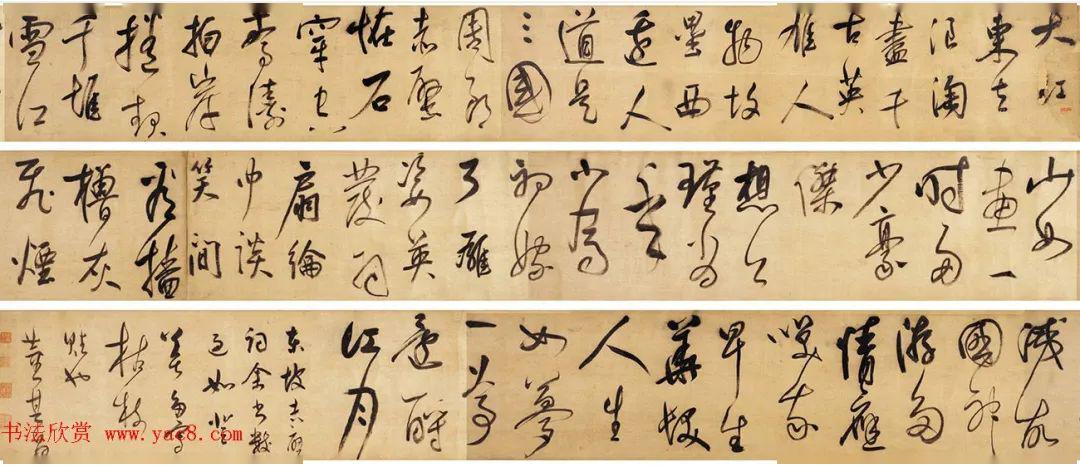 大江
東去
浪淘
盡千
古英
雄人
物故
壘西
邊人
道是
三國
周郎
赤壁
怪石
穿空
驚濤
拍岸
捲起
千堆
雪江
山如
畫一
時多
少豪
傑
想公
瑾當
年
小喬
初嫁
了雄
姿英
發羽
扇綸
巾談
笑間
看檣
櫓灰
飛煙
滅故
國神
游多
情應
笑我
早生
華髮
人生
如夢
一尊
還酹
江月
東坡赤壁
詞余書數
過如
枯枝
董其昌
书法欣赏 www.yac8.com